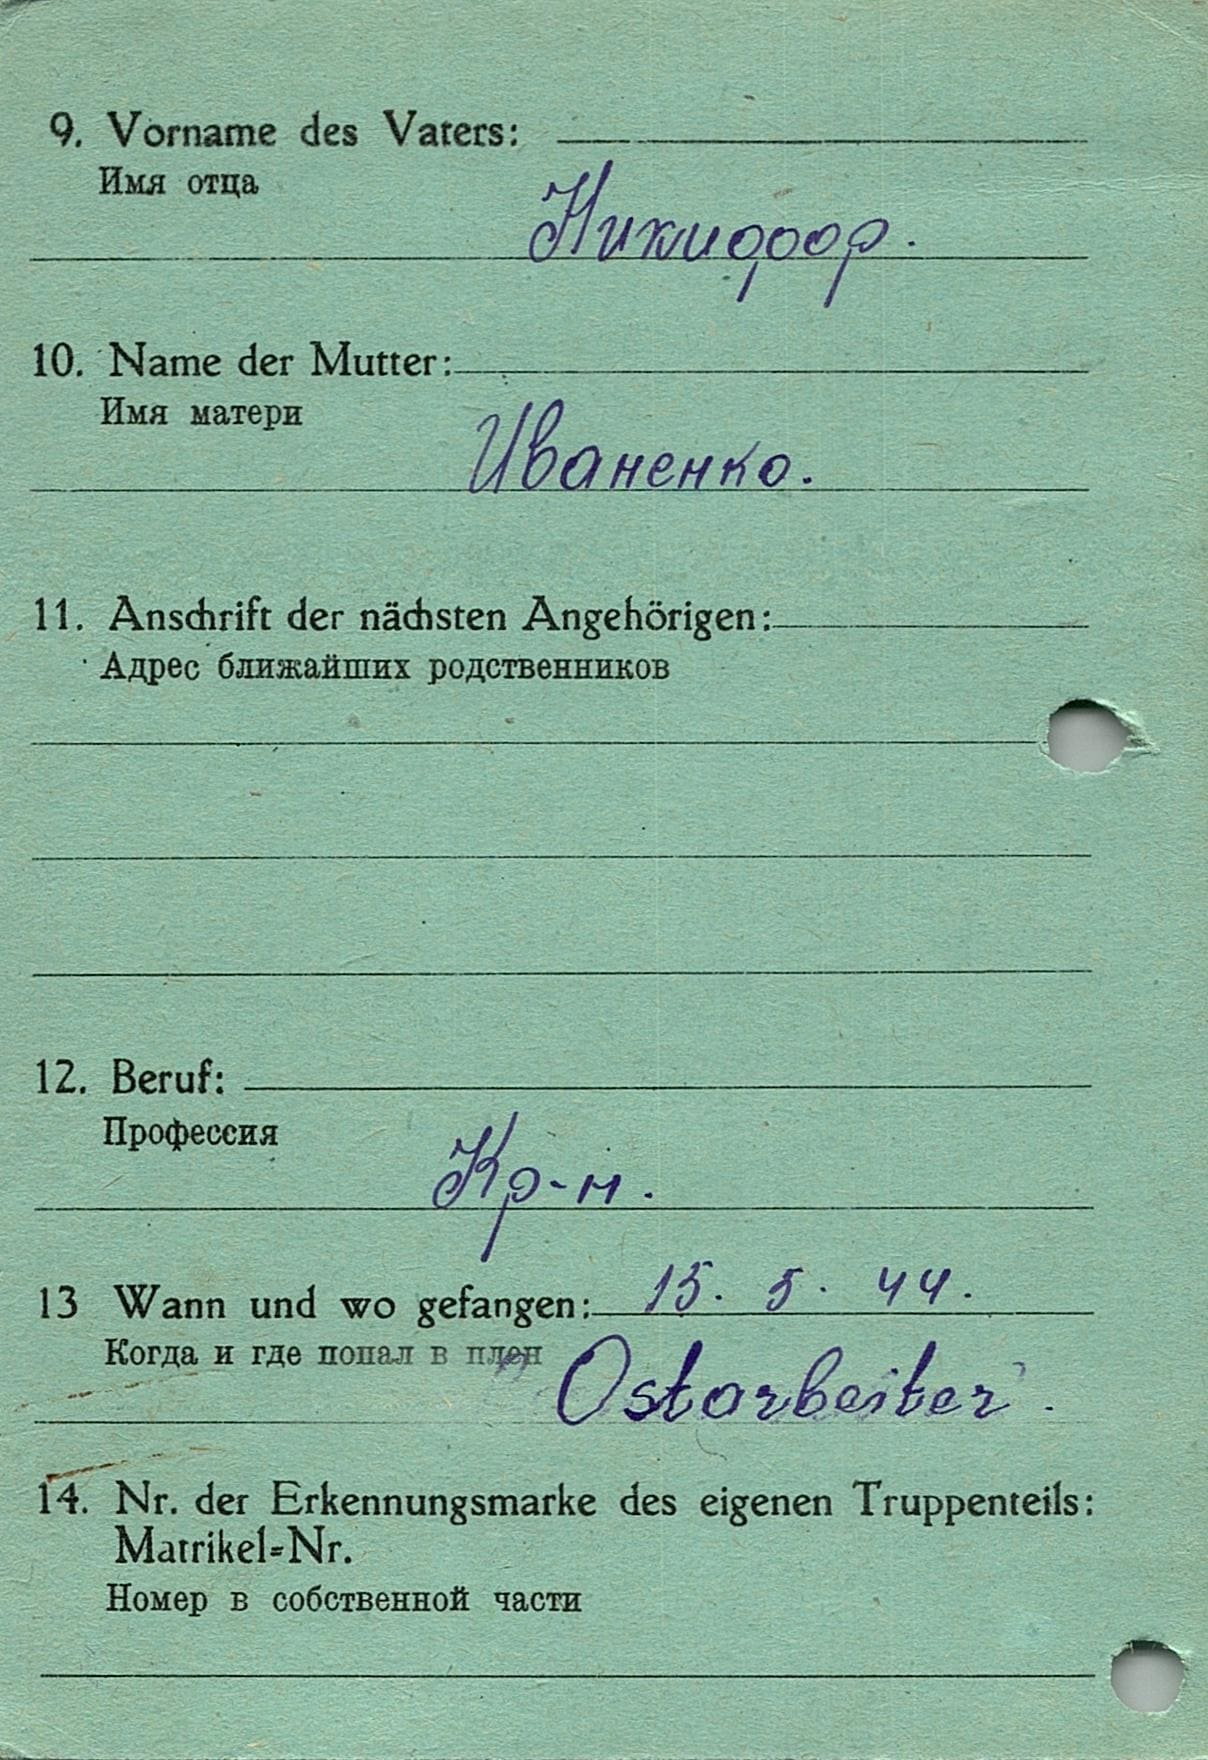 9. Vorname des Vaters:
Имя отца
Никифор.
10. Name der Mutter:
Имя матери
Иваненко.
11. Anschrift der nächsten Angehörigen:
Адрес ближайших родственников
12. Beruf:
Профессия
Кр-н.
13 Wann und wo gefangen: 15. 5. 44.
Когда и где попал в плен
Ostarbeiter.
14. Nr. der Erkennungsmarke des eigenen Truppenteils:
Matrikel-Nr.
Номер в собственной части